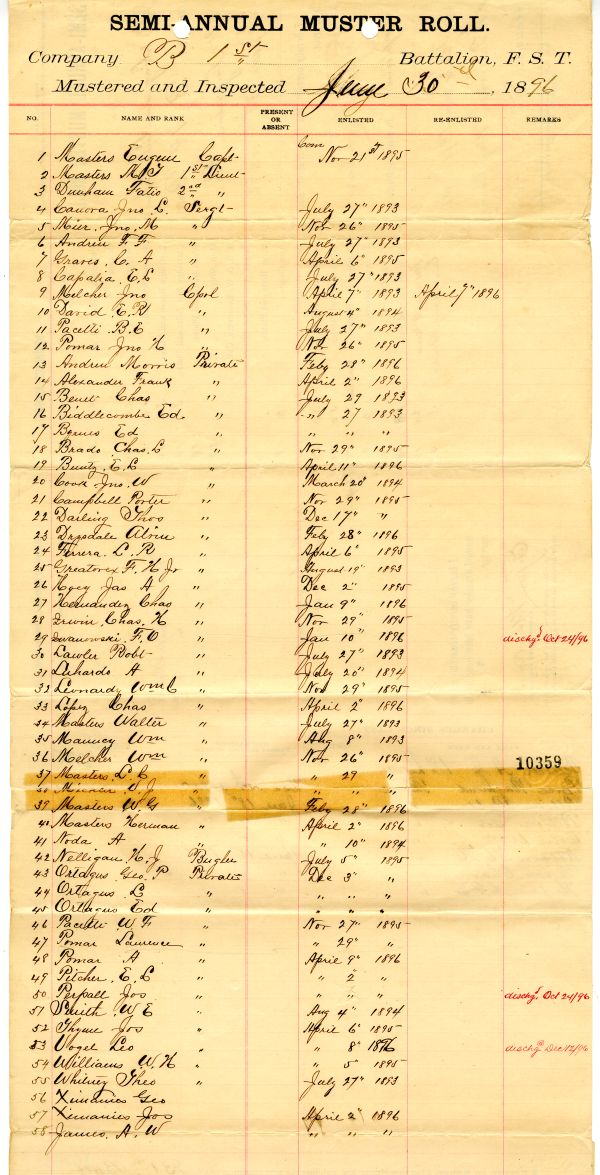 SEMI-ANNUAL MUSTER ROLL.
Company B 1st Battalion, F. S. T.
Mustered and Inspected June 30 1896
NO. NAME AND RANK PRESENT OR ABSENT ENLISTED RE-ENLISTED REMARKS
Com
1 Masters Eugene Capt Nov 21st 1895
2 Masters M. J 1st Lieut
3 Dunham Tatio 2nd "
4 Canova Jno L. Sergt July 27" 1893
5 Mier, Jno, M " Nov 26" 1895
6 Andreu F. F " July 27" 1893
7 Graves, C. A " April 6" 1895
8 Capalia, E. L " July 27" 1893
9 Melcher Jno Cprl April 7" 1893 April 7" 1896
10 David E. R " August 4" 1894
11 Pacetti B. E " July 27" 1893
12 Pomar Jno H " Nov 26" 1895
13 Andreu Morris Private Feby 28" 1896
14 Alexander Frank " April 2" 1896
15 Benet Chas " July 29 1893
16 Biddlecombe Ed. " " 27 1893
17 Ed " " " "
18 Brado Chas. L " Nov 29" 1895
19 Buntz, E. L " April 11" 1896
20 Cook Jno. W " March 20" 1894
21 Campbell Porter " Nov 29" 1895
22 Darling Thos " Dec 17" "
23 Drysdale Alvin " Feby 28" 1896
24 Ferrera L. R " April 6" 1895
25 Greatorex F. H Jr " August 19" 1893
26 Hoey Jas A " Dec 2" 1895
27 Hernandez Chas " Jan 9" 1896
28 Erwin, Chas, H " Nov 29" 1895
29 Iwanowski, F. O " Jan 10" 1896 dischgd Oct 24/96
30 Lawler Robt " July 27" 1893
31 Lunardo A " July 20" 1894
32 Leonardy Wm C " Nov 29" 1895
33 Lopez Chas " April 2" 1896
34 Masters Walter " July 27" 1893
35 Manucy Wm " Aug 8" 1893
36 Melcher Wm " Nov 26" 1895
10359
37 Masters L. C " " 29 "
38 " " "
39 Masters W. G " Feby 28" 1896
40 Masters Herman " April 2" 1896
41 Noda, A " " 10" 1894
42 Nelligan H. J Bugler July 5" 1895
43 Ortagus Geo. P Private Dec 3" "
44 Ortagus L " " " "
45 Ortagus Ed " " " "
46 Pacetti W. F " Nov 27" 1895
47 Pomar Lawrence " " 29" "
48 Pomar A " April 9" 1896
49 Pitcher E. L " " 2 "
50 Perpall Jos " " " " dischgd Oct 24/96
51 Smith, W. E " Aug 4" 1894
52 Thyme Jos " April 6" 1895
53 Vogel Leo " " 8" 1896 dischgd Dec 12/96
54 Williams W. H " " 5 1895
55 Whitney Theo " July 27" 1893
56 Ximanies Geo
57 Ximanies Jos April 2" 1896
58 James. A. W " " "